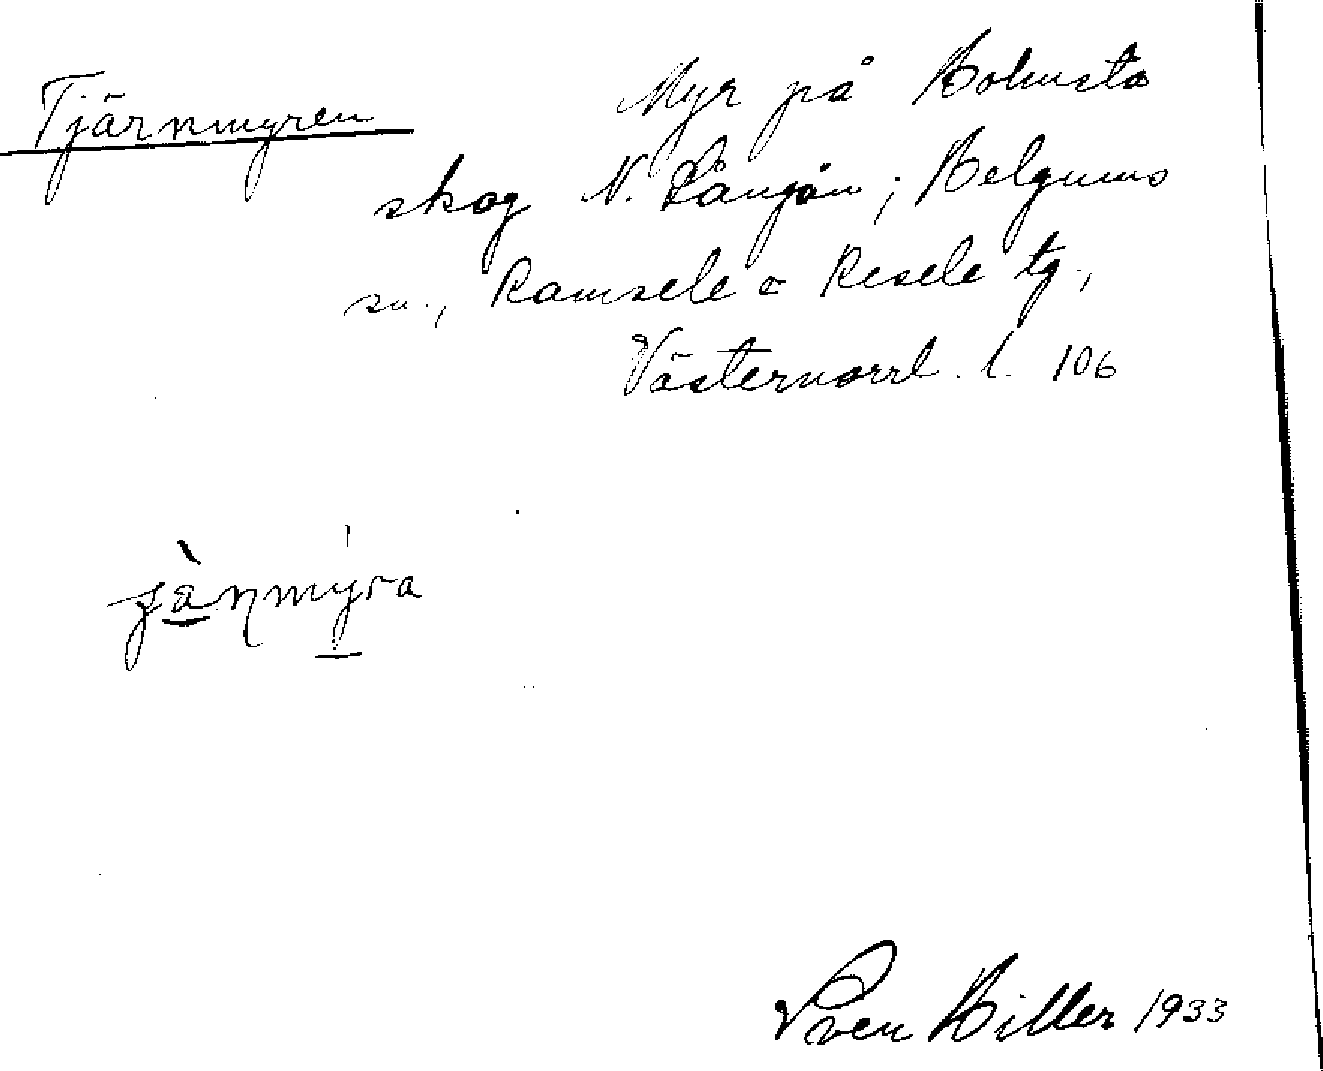 Tjärnmyren
Myr på Holmsta
skog N. Långån; Helgums
sn., Ramsele o Resele tg.,
Västernorrl. l. 106
jànmyra
Sven Hiller 1933